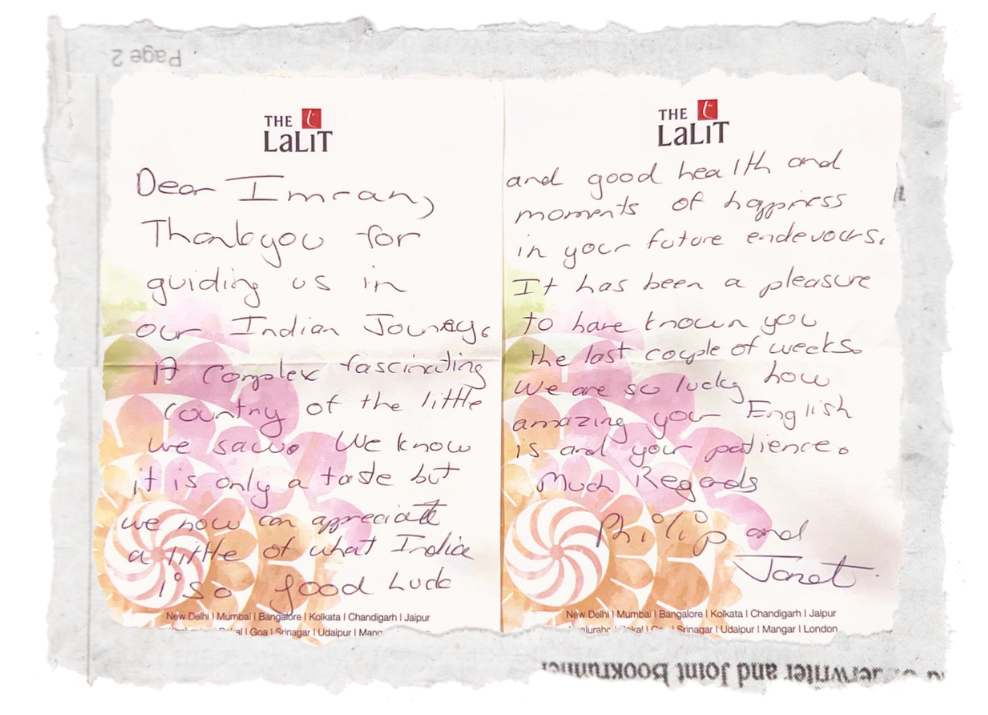 Page 2
THE
LaLiT
Dear Imran,
Thankyou for
guiding us in
our Indian Journey.
A Complex fascinating
country of the little
we saw. We know
it is only a taste but
we now can appreciate
a little of what India
is. Good Luck
New Delhi | Mumbai | Bangalore | Kolkata | Chandigarh | Jaipur
| Goa | Srinagar | Udaipur | Mangar
THE
LaLiT
and good health and
moments of happiness
in your future endevours.
It has been a pleasure
to have known you
the last couple of weeks.
We are so lucky how
amazing your English
is and your patience.
Much Regards
Philip and
Janet.
New Delhi | Mumbai | Bangalore | Kolkata | Chandigarh | Jaipur
| Srinagar | Udaipur | Mangar | London
and Joint Bookrunner